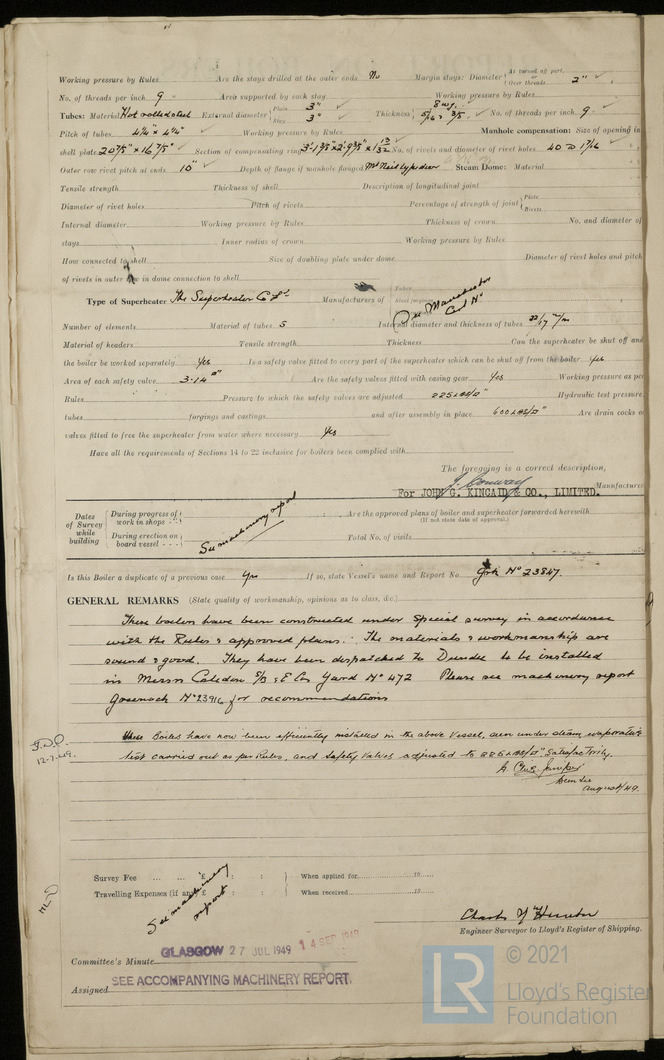 Working pressure by Rules Are the stays drilled at the outer ends No Margin stays: Diameter { At turned off part, or Over threads 2"
No. of threads per inch 9 Area supported by each stay Working pressure by Rules
Tubes: Material Hot rolled steel External diameter { Plain 3" Stay 3" Thickness { 8 wg. 5/16 & 3/8 No. of threads per inch. 9
Pitch of tubes 4¼" × 4¼" Working pressure by Rules Manhole compensation: Size of opening in
shell plate Section of compensating ring No. of rivets and diameter of rivet holes 40 @ 1 7/16
Outer row rivet pitch at ends 10" Depth of flange if manhole flanged McNeil type door Steam Dome: Material
Tensile strength Thickness of shell Description of longitudinal joint
Diameter of rivet holes Pitch of rivets Percentage of strength of joint { Plate Rivets
Internal diameter Working pressure by Rules Thickness of crown No. and diameter of
stays Inner radius of crown Working pressure by Rules
How connected to shell Size of doubling plate under dome Diameter of rivet holes and pitch
of rivets in outer row in dome connection to shell
Type of Superheater The Superheater Co Ltd Manufacturers of { Tubes Steel forgings See Manchester Cert No
Number of elements Material of tubes S Internal diameter and thickness of tubes 22/17 m/m
Material of headers Tensile strength Thickness Can the superheater be shut off and
the boiler be worked separately Yes Is a safety valve fitted to every part of the superheater which can be shut off from the boiler Yes
Area of each safety valve 3.14 □" Are the safety valves fitted with easing gear Yes Working pressure as per
Rules Pressure to which the safety valves are adjusted 225 LBS/□" Hydraulic test pressure
tubes forgings and castings and after assembly in place 600 LBS/□" Are drain cocks or
valves fitted to free the superheater from water where necessary Yes
Have all the requirements of Sections 14 to 22 inclusive for boilers been complied with
The foregoing is a correct description,
J. Conway
For JOHN G. KINCAID & CO., LIMITED. Manufacturer
Dates of Survey while building { During progress of work in shops - - During erection on board vessel - - - See machinery report
Are the approved plans of boiler and superheater forwarded herewith
(If not state date of approval.)
Total No. of visits
Is this Boiler a duplicate of a previous case Yes If so, state Vessel's name and Report No. Grk No 23847.
GENERAL REMARKS (State quality of workmanship, opinions as to class, &c.)
These boilers have been constructed under Special survey in accordance
with the Rules & approved plans. The materials & workmanship are
sound & good. They have been dispatched to Dundee to be installed
in Messrs Caledon S/B & E Co Yard No 472 Please see machinery report
Greenock No 23916 for recommendations
These Boilers have now been efficiently installed in the above vessel, seen under steam, evaporative
test carried out as per Rules, and Safety Valves adjusted to 225 LBS/□". Satisfactorily.
Dundee
August/49.
12.7.49.
Survey Fee ... ... £ : : When applied for 19
Travelling Expenses (if any) £ : : When received 19
See machinery report
Charles Hunter
Engineer Surveyor to Lloyd's Register of Shipping.
GLASGOW 27 JUL 1949 14 SEP 1949
Committee's Minute
SEE ACCOMPANYING MACHINERY REPORT.
Assigned
LR © 2021
Lloyd's Register
Foundation